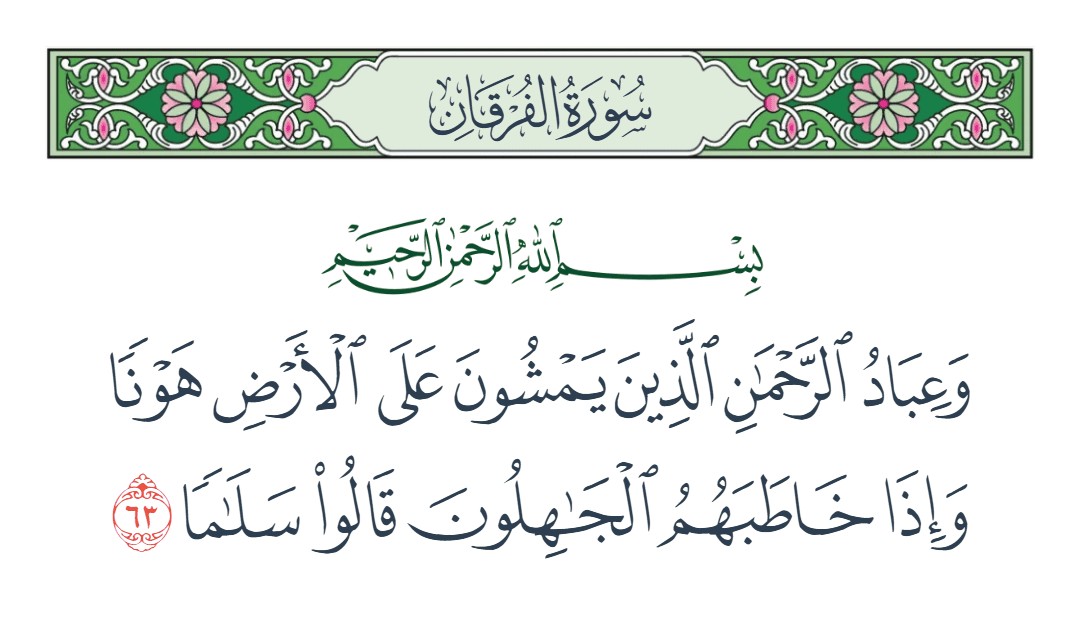 سُورَةُ الفُرْقَانِ
بِسْمِ ٱللَّهِ ٱلرَّحْمَٰنِ ٱلرَّحِيمِ
وَعِبَادُ ٱلرَّحْمَٰنِ ٱلَّذِينَ يَمْشُونَ عَلَى ٱلْأَرْضِ هَوْنًا
وَإِذَا خَاطَبَهُمُ ٱلْجَٰهِلُونَ قَالُوا۟ سَلَٰمًا ٦٣